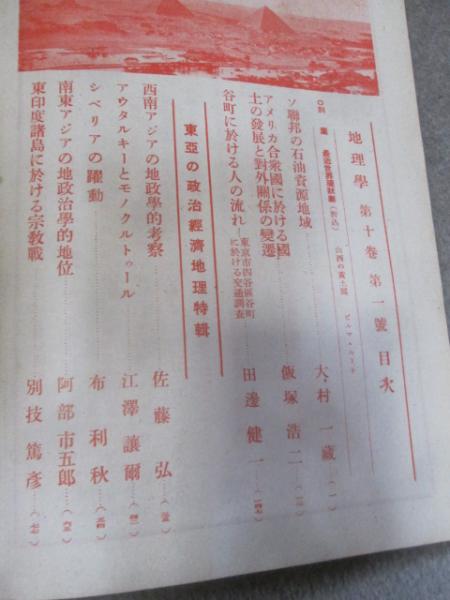 地理學 第十卷 第一號 目次
ソ聯邦の石油資源地域……大村一藏……(一)
アメリカ合衆國に於ける國
土の發展と對外關係の變遷……飯塚浩二……(一三)
谷町に於ける人の流れ—東京市四谷區谷町
に於ける交通調査……田邊健一……(一四七)
東亞の政治經濟地理特輯
西南アジアの地政學的考察……佐藤弘……
アウタルキーとモノクルトゥール……江澤讓爾……
シベリアの躍動……布利秋……
南東アジアの地政治學的地位……阿部市五郎……
東印度諸島に於ける宗教戰……別技篤彥……